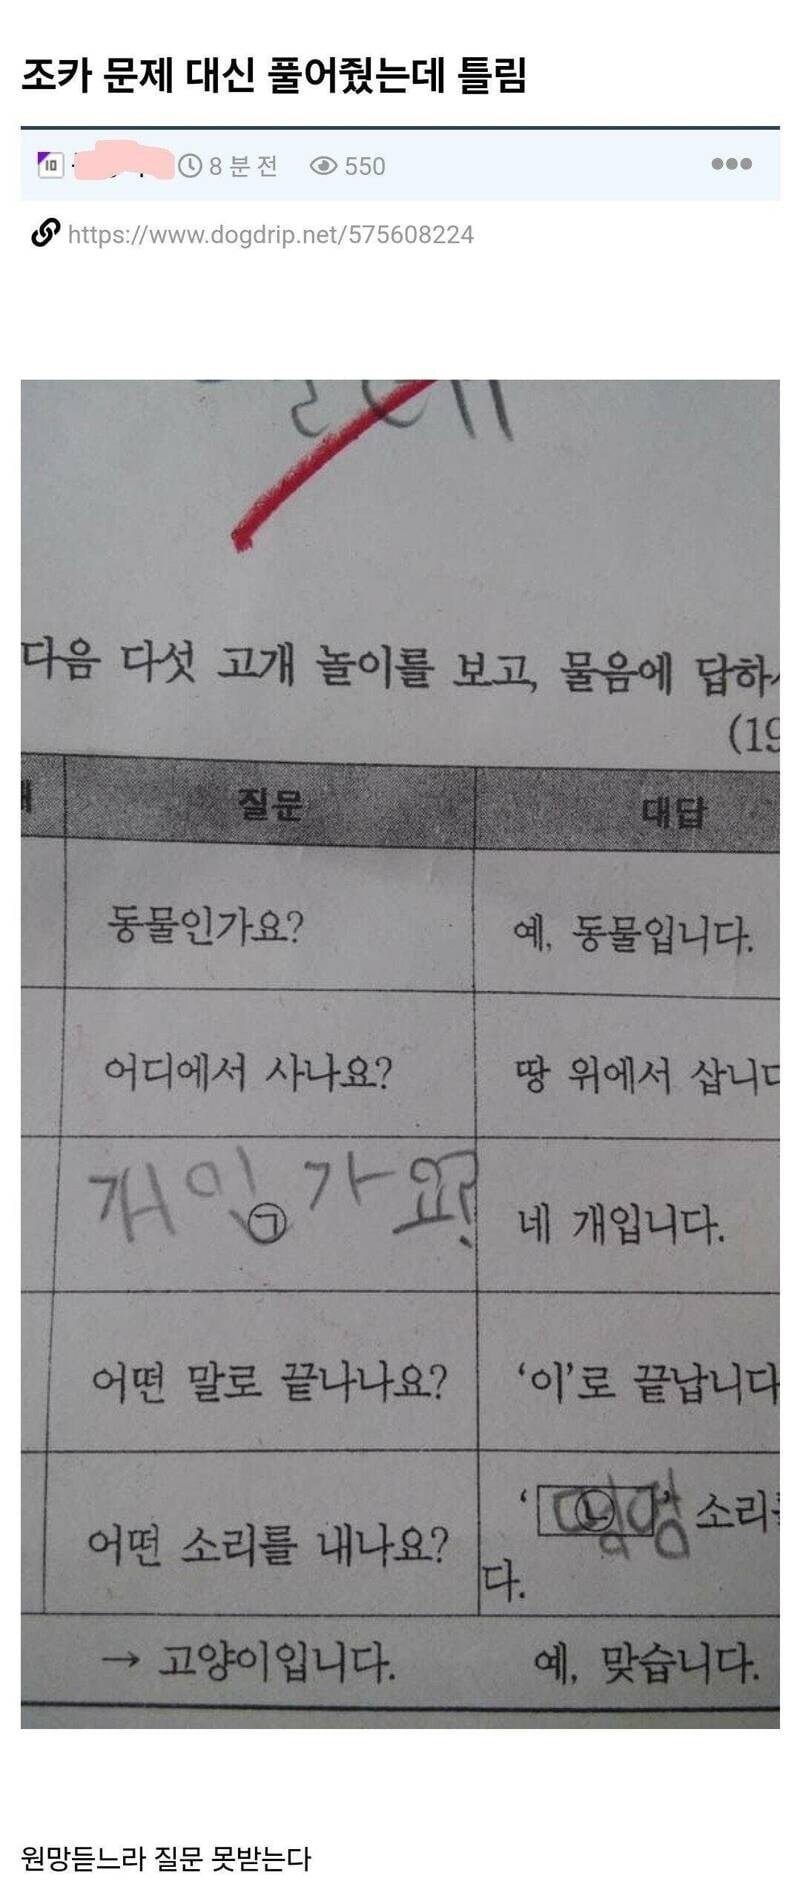 조카 문제 대신 풀어줬는데 틀림
10 8 분 전 550
https://www.dogdrip.net/575608224
다음 다섯 고개 놀이를 보고, 물음에 답하
(19
질문 대답
동물인가요? 예, 동물입니다.
어디에서 사나요? 땅 위에서 삽니다
개인가요? ㉠ 네 개입니다.
어떤 말로 끝나나요? ‘이’로 끝납니다
‘ ㉡ ’ 소리를
어떤 소리를 내나요?
다.
→ 고양이입니다. 예, 맞습니다.
원망듣느라 질문 못받는다